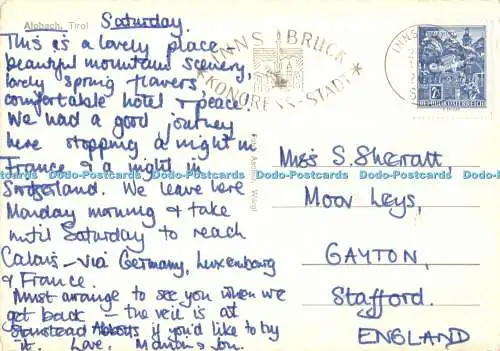 Alpbach, Tirol
Saturday.
This is a lovely place -
beautiful mountain scenery,
lovely spring flavers,
comfortable hotel & peace!
We had a good journey
here stopping a night in
France & a night in
Switzerland. We leave here
Monday morning & take
until Saturday to reach
Calais - via Germany, Luxembourg
& France.
Must arrange to see you when we
get back - the veil is at
Stanstead Abbotts if you'd like to try
it. Love, Marian & Jon.
INNSBRUCK
KONGRESS-STADT
INNS
REPUBLIK ÖSTERREICH
Miss S. Sherratt,
Moor Leys,
GAYTON,
Stafford.
ENGLAND
Dodo-Postcards Dodo-Postcards Dodo-Postcards Dodo-Postcards Dodo-Postcards Dodo-Postcards